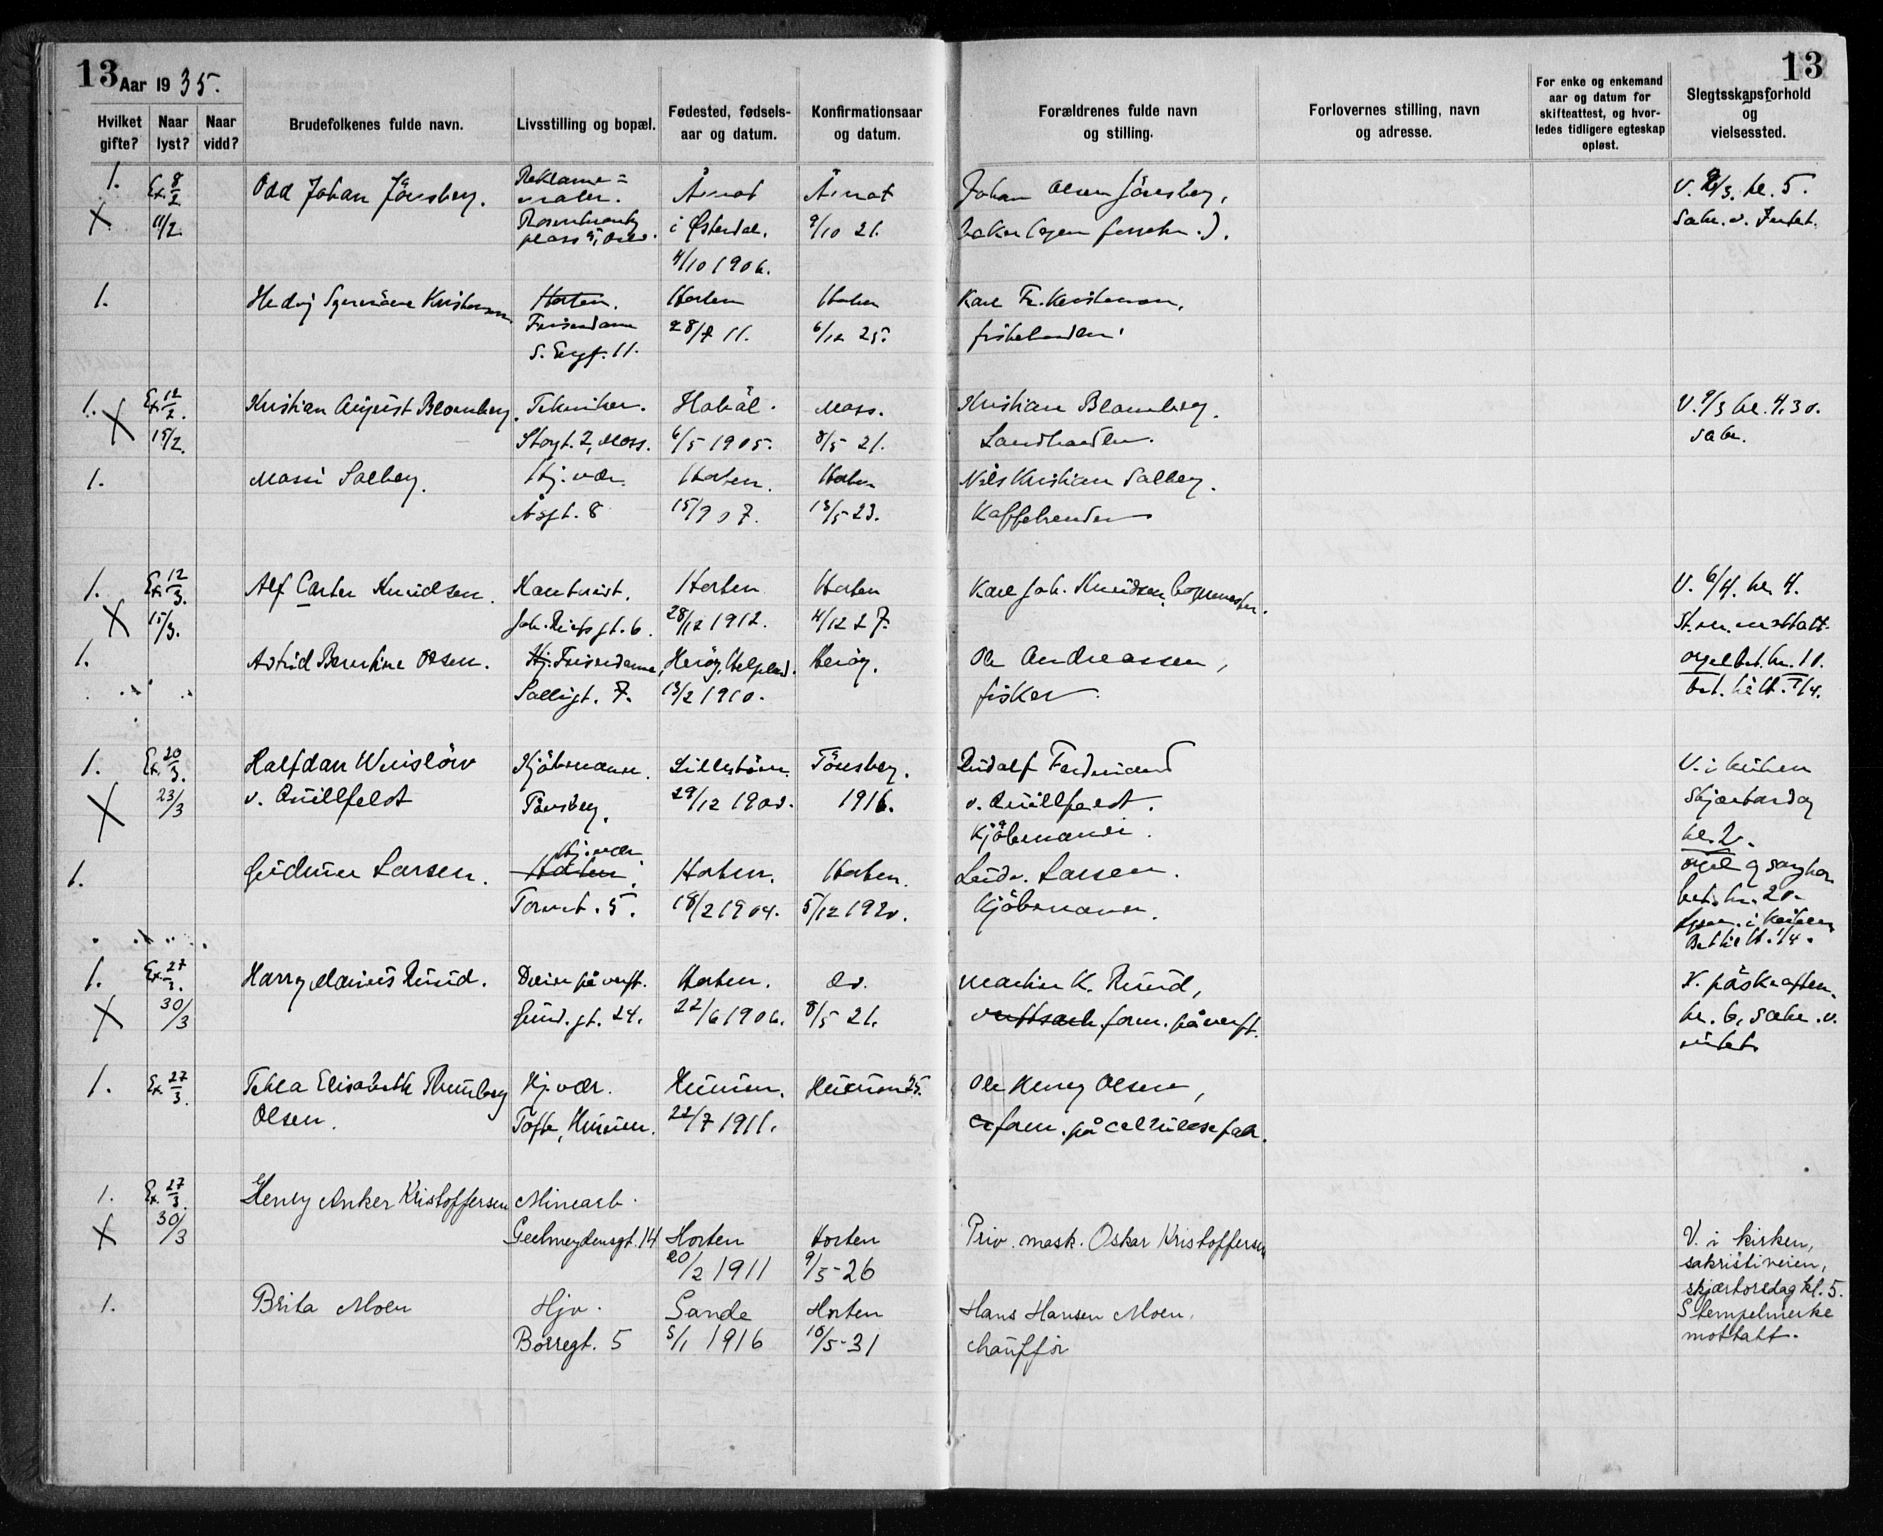 13 Aar 1935.
13
Hvilket gifte?
Naar lyst?
Naar vidd?
Brudefolkenes fulde navn.
Livsstilling og bopæl.
Fødested, fødsels-
aar og datum.
Konfirmationsaar
og datum.
Forældrenes fulde navn
og stilling.
Forlovernes stilling, navn
og adresse.
For enke og enkemand
aar og datum for
skifteattest, og hvor-
ledes tidligere egteskap
opløst.
Slegtsskapsforhold
og
vielsessted.
1. Ex. 8/2 Odd Johan Jönsberg. Reklame= Åmot Åmot Johan Olsen Jönsberg, kl. 5.
X 11/2. i Østerdal. 9/10 21.
4/10 1906.
1. Hedvig Kristensen Horten. Horten Horten Karl Fr. Kristensen,
Frisørdame 28/7 11. 6/12 25. fiskehandler.
S. 11.
1. Ex. 12/2. Kristian August Blomberg. Tekniker. Hobøl. Moss. Kristian Blomberg. V. 9/3 kl. 4.30.
X 15/2. Stogt. 2, Moss. 6/5 1905. 8/5 21. Landhandler. Sakr.
1. Massi Solberg. Hj. vær. Horten. Horten Nils Kristian Solberg.
Åsgt. 8 15/9 07. 13/5 23.
1. Ex. 12/3. Alf Carter Knudsen. Kontorist. Horten Horten Karl Joh. Knudsen, V. 6/4. kl. 4.
X 15/3. gt. 6. 28/12 1912. 4/12 27. St. m. mottatt.
1. Astrid Berntine Olsen. Hj. Frisørdame, Herøy, Helgeland. Herøy. Ole Andreassen, orgel bet. kr. 10.
gt. 7. 13/2 1910. fisker.
1. Ex. 20/3. Halfdan Winslöw Kjöbmann. Lilleström. Tönsberg. Rudolf Ferdinand V. i kirken
X 23/3 v. Quillfeldt Tönsberg. 29/12 1900. 1916. v. Quillfeldt. Skjærtorsdag
Kjöbmann. kl. 2.
Hj. vær.
1. Gudrun Larsen. Horten. Horten. Horten. Ludv. Larsen. orgel og sang
Torvet. 5. 18/2 1904. 5/12 1920. Kjöbmann. bet. kr. 20.
1. Ex. 27/3. Harry Marius Ruud. Dreier på verft. Horten. do. Martin K. Ruud, V. påskeaften.
X 30/3 gt. 24. 22/6 1906. 8/5 21. form. på verft. kl. 6, Sakr. v.
1. Ex. 27/3. Tekla Elisabeth Thunberg Hj. vær. Hurum. Hurum 25. Ole Henry Olsen,
Olsen. Tofte, Hurum. 22/7 1911. form. på cellulosefab.
1. Ex. 27/3. Henry Anker Kristoffersen Minearb.
X 30/3 Geelmeydensgt. 14 Horten Horten Priv. mask. Oskar Kristoffersen V. i kirken,
20/2 1911 9/5-26 sakristiveien,
skjærtorsdag kl. 5.
1. Brita Moen Hjv. Sande Horten Hans Hansen Moen, Stempelmerke
Borregt. 5 5/1 1916 10/5-31 chauffør mottatt.